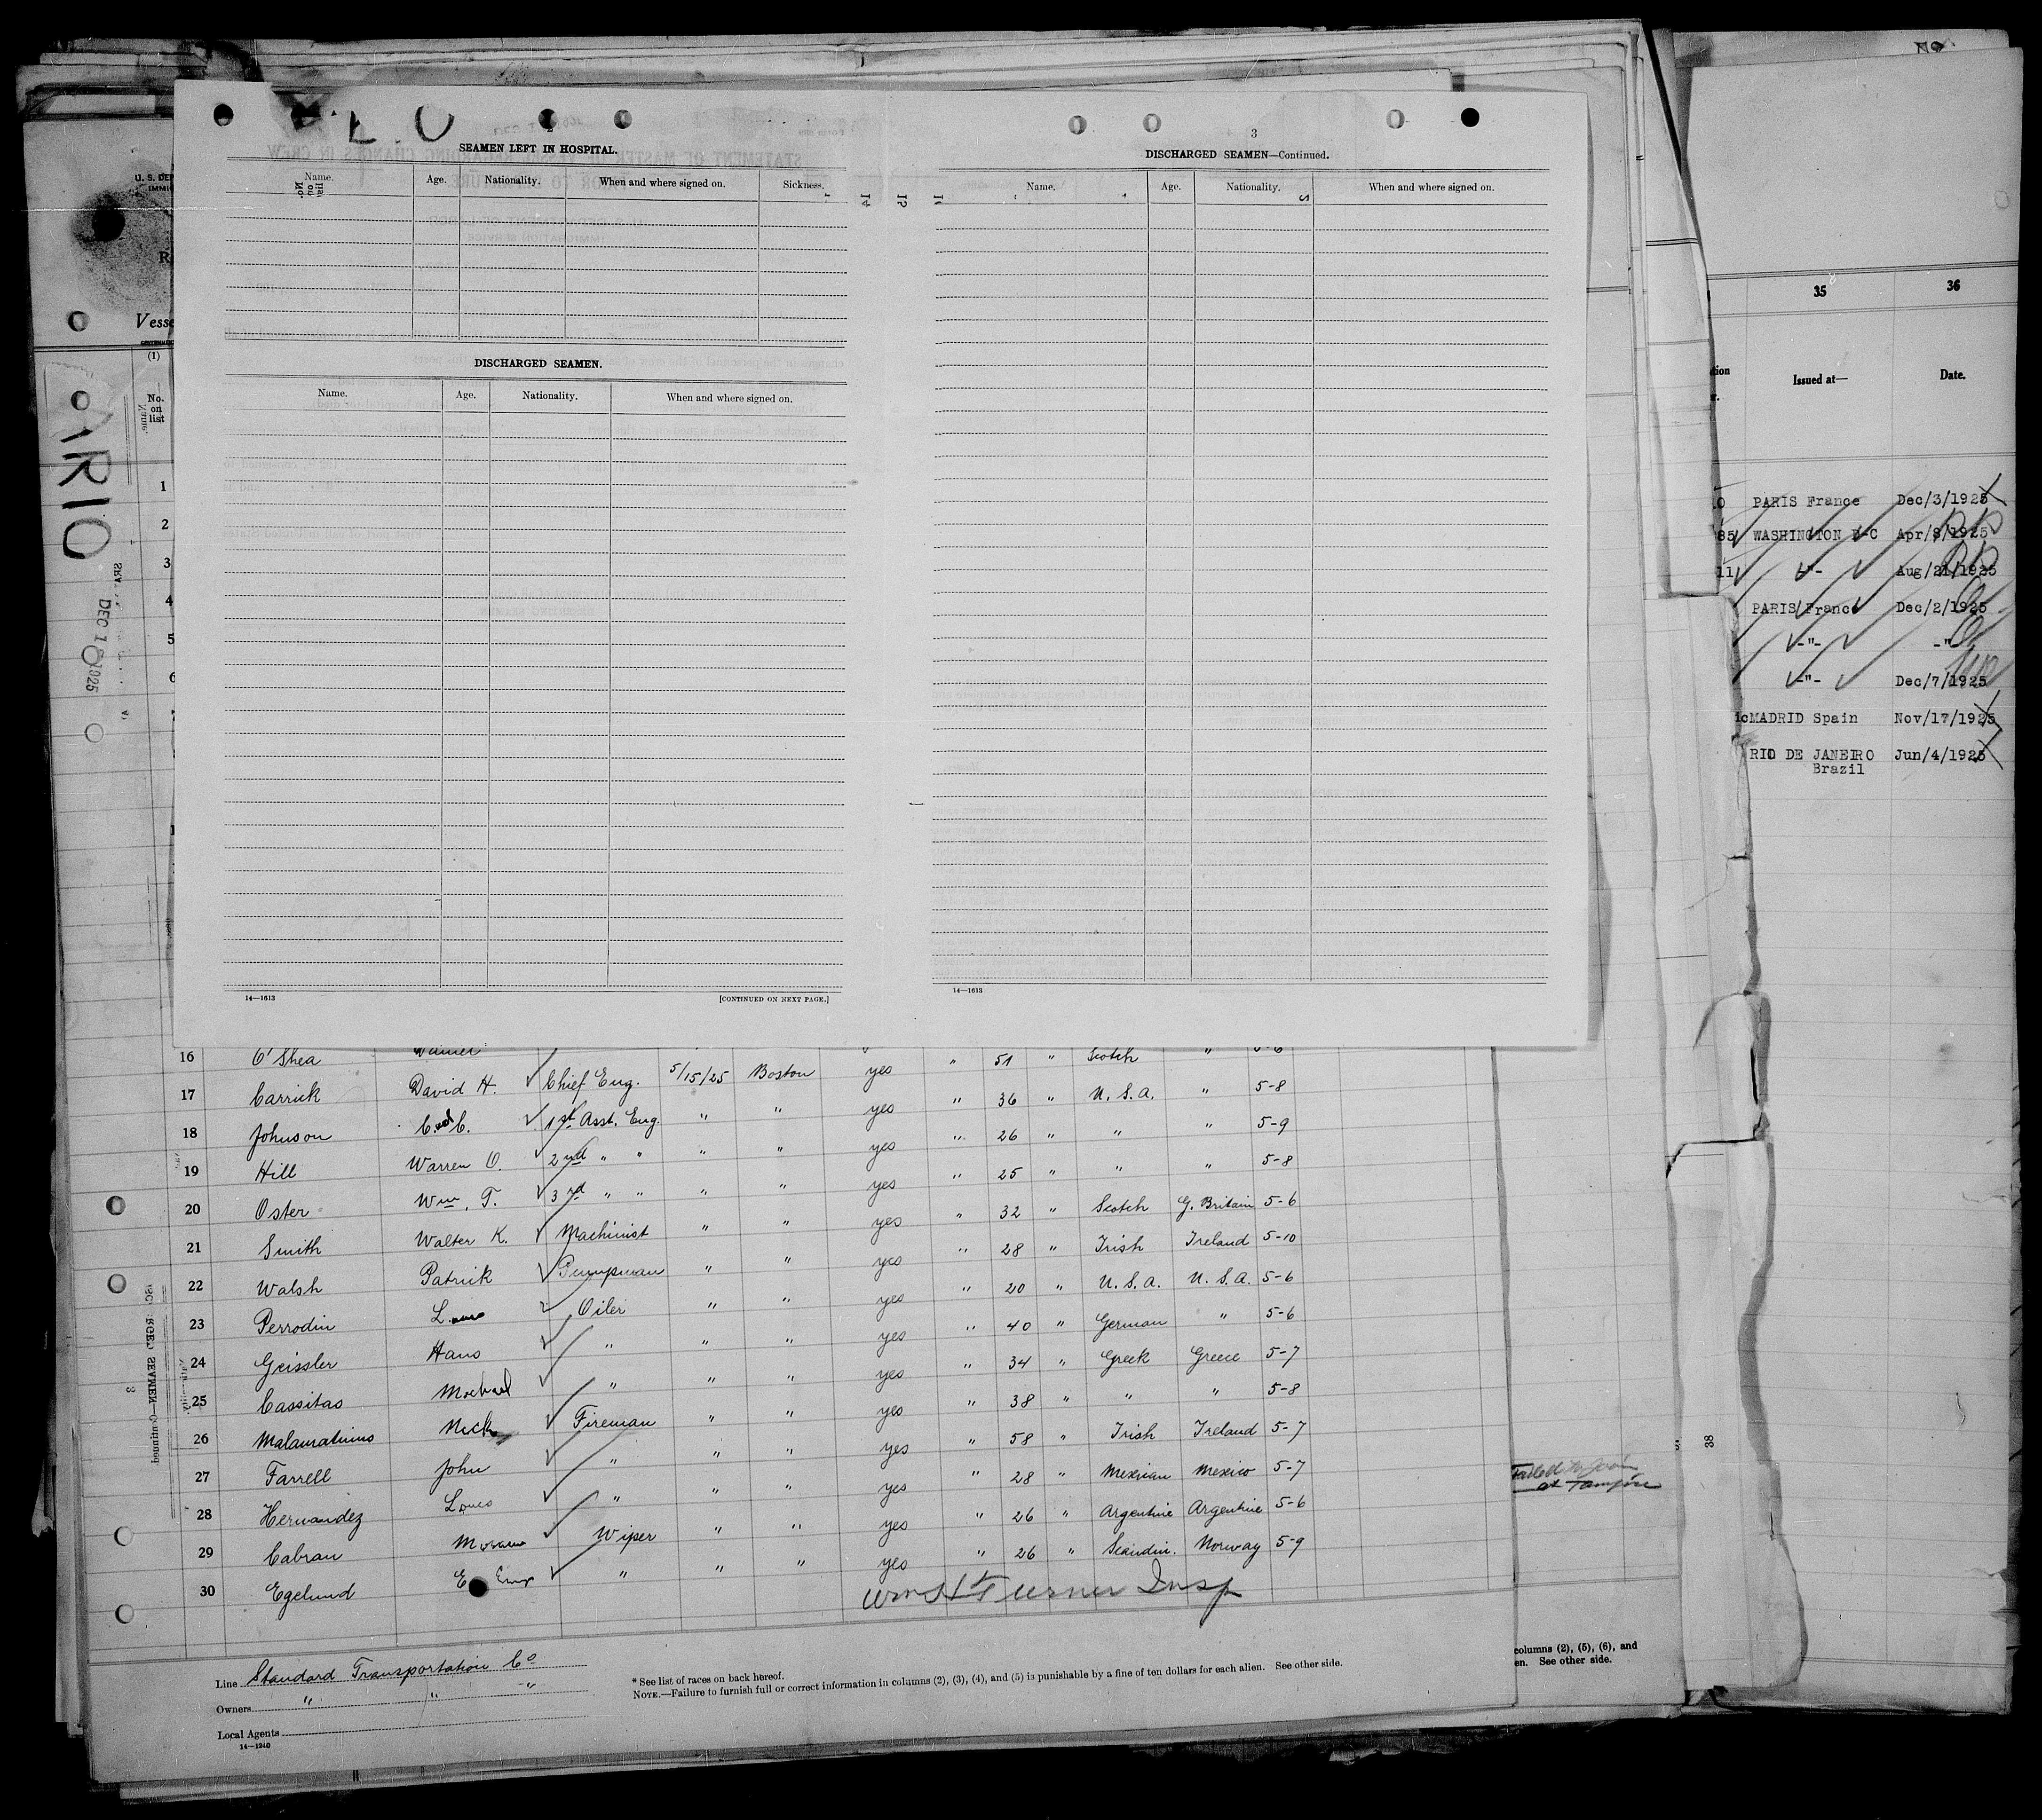 SEAMEN LEFT IN HOSPITAL.
Name. Age. Nationality. When and where signed on. Sickness.
DISCHARGED SEAMEN.
Name. Age. Nationality. When and where signed on.
14—1613 [CONTINUED ON NEXT PAGE.]
3
DISCHARGED SEAMEN—Continued.
Name. Age. Nationality. When and where signed on.
14—1613
U. S. DEP
IMMI
R
Vesse
(1)
No.
on
list
1
2
3
4
5
6
7
RIO
DEC 1 1925
35 36
Issued at— Date.
PARIS France Dec/3/1925
85 WASHINGTON D-C Apr/8/1925
11 -"- Aug/21/1925
PARIS France Dec/2/1925
-"- -"-
-"- Dec/7/1925
MADRID Spain Nov/17/1925
RIO DE JANEIRO Jun/4/1925
Brazil
38
16 O'Shea Daniel yes " 51 " Scotch " 5-6
17 Carrick David H. Chief Eng. 5/15/25 Boston yes " 36 " U.S.A. " 5-8
18 Johnson 1st Asst. Eng. " " yes " 26 " " " 5-9
19 Hill Warren O. 2nd " " " " yes " 25 " " " 5-8
20 Oster Wm. T. 3rd " " " " yes " 32 " Scotch G. Britain 5-6
21 Smith Walter K. Machinist " " yes " 28 " Irish Ireland 5-10
22 Walsh Patrick Pumpman " " yes " 20 " U.S.A. U.S.A. 5-6
23 Perrodin Oiler " " yes " 40 " German " 5-6
24 Geissler Hans " " " yes " 34 " Greek Greece 5-7
25 Cassitas Michael " " " yes " 38 " " " 5-8
26 Nick Fireman " " yes " 58 " Irish Ireland 5-7
27 Farrell John " " " yes " 28 " Mexican Mexico 5-7
28 Hernandez Louis " " " yes " 26 " Argentine Argentine 5-6
29 Cabran Wiper " " yes " 26 " Scandin. Norway 5-9
30 Egelund " " "
Wm H Turner Insp
Failed to join
at Tampico
Line Standard Transportation Co
Owners " " "
Local Agents
14—1240
* See list of races on back hereof.
NOTE.—Failure to furnish full or correct information in columns (2), (3), (4), and (5) is punishable by a fine of ten dollars for each alien. See other side.
columns (2), (5), (6), and
en. See other side.